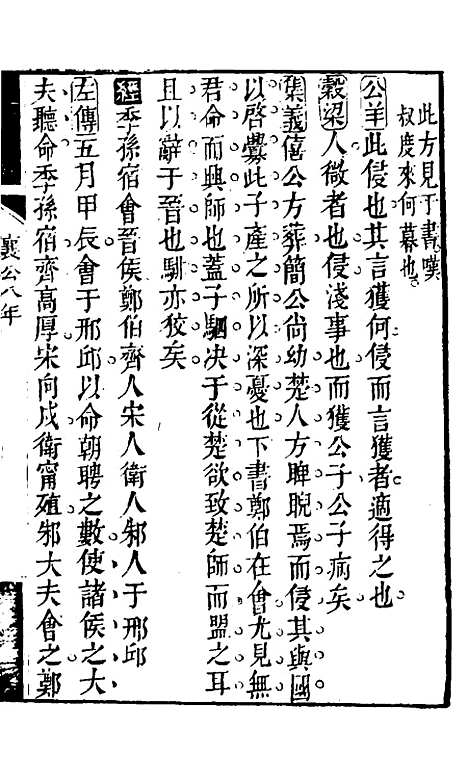 此方見于書嘆
叔度來何暮也
公羊此侵也其言獲何侵而言獲者適得之也
穀梁人微者也侵淺事也而獲公子公子病矣
集義僖公方葬簡公尚幼楚人方睥睨焉而侵其與國
以啓釁此子產之所以深憂也下書鄭伯在會尤見無
君命而興師也蓋子駟决于從楚欲致楚師而盟之耳
且以辭于晉也駟亦狡矣
經季孫宿會晉侯鄭伯齊人宋人衛人邾人于邢邱
左傳五月甲辰會于邢邱以命朝聘之數使諸侯之大
夫聽命季孫宿齊高厚宋向戌衛甯殖邾大夫會之鄭
襄公八年